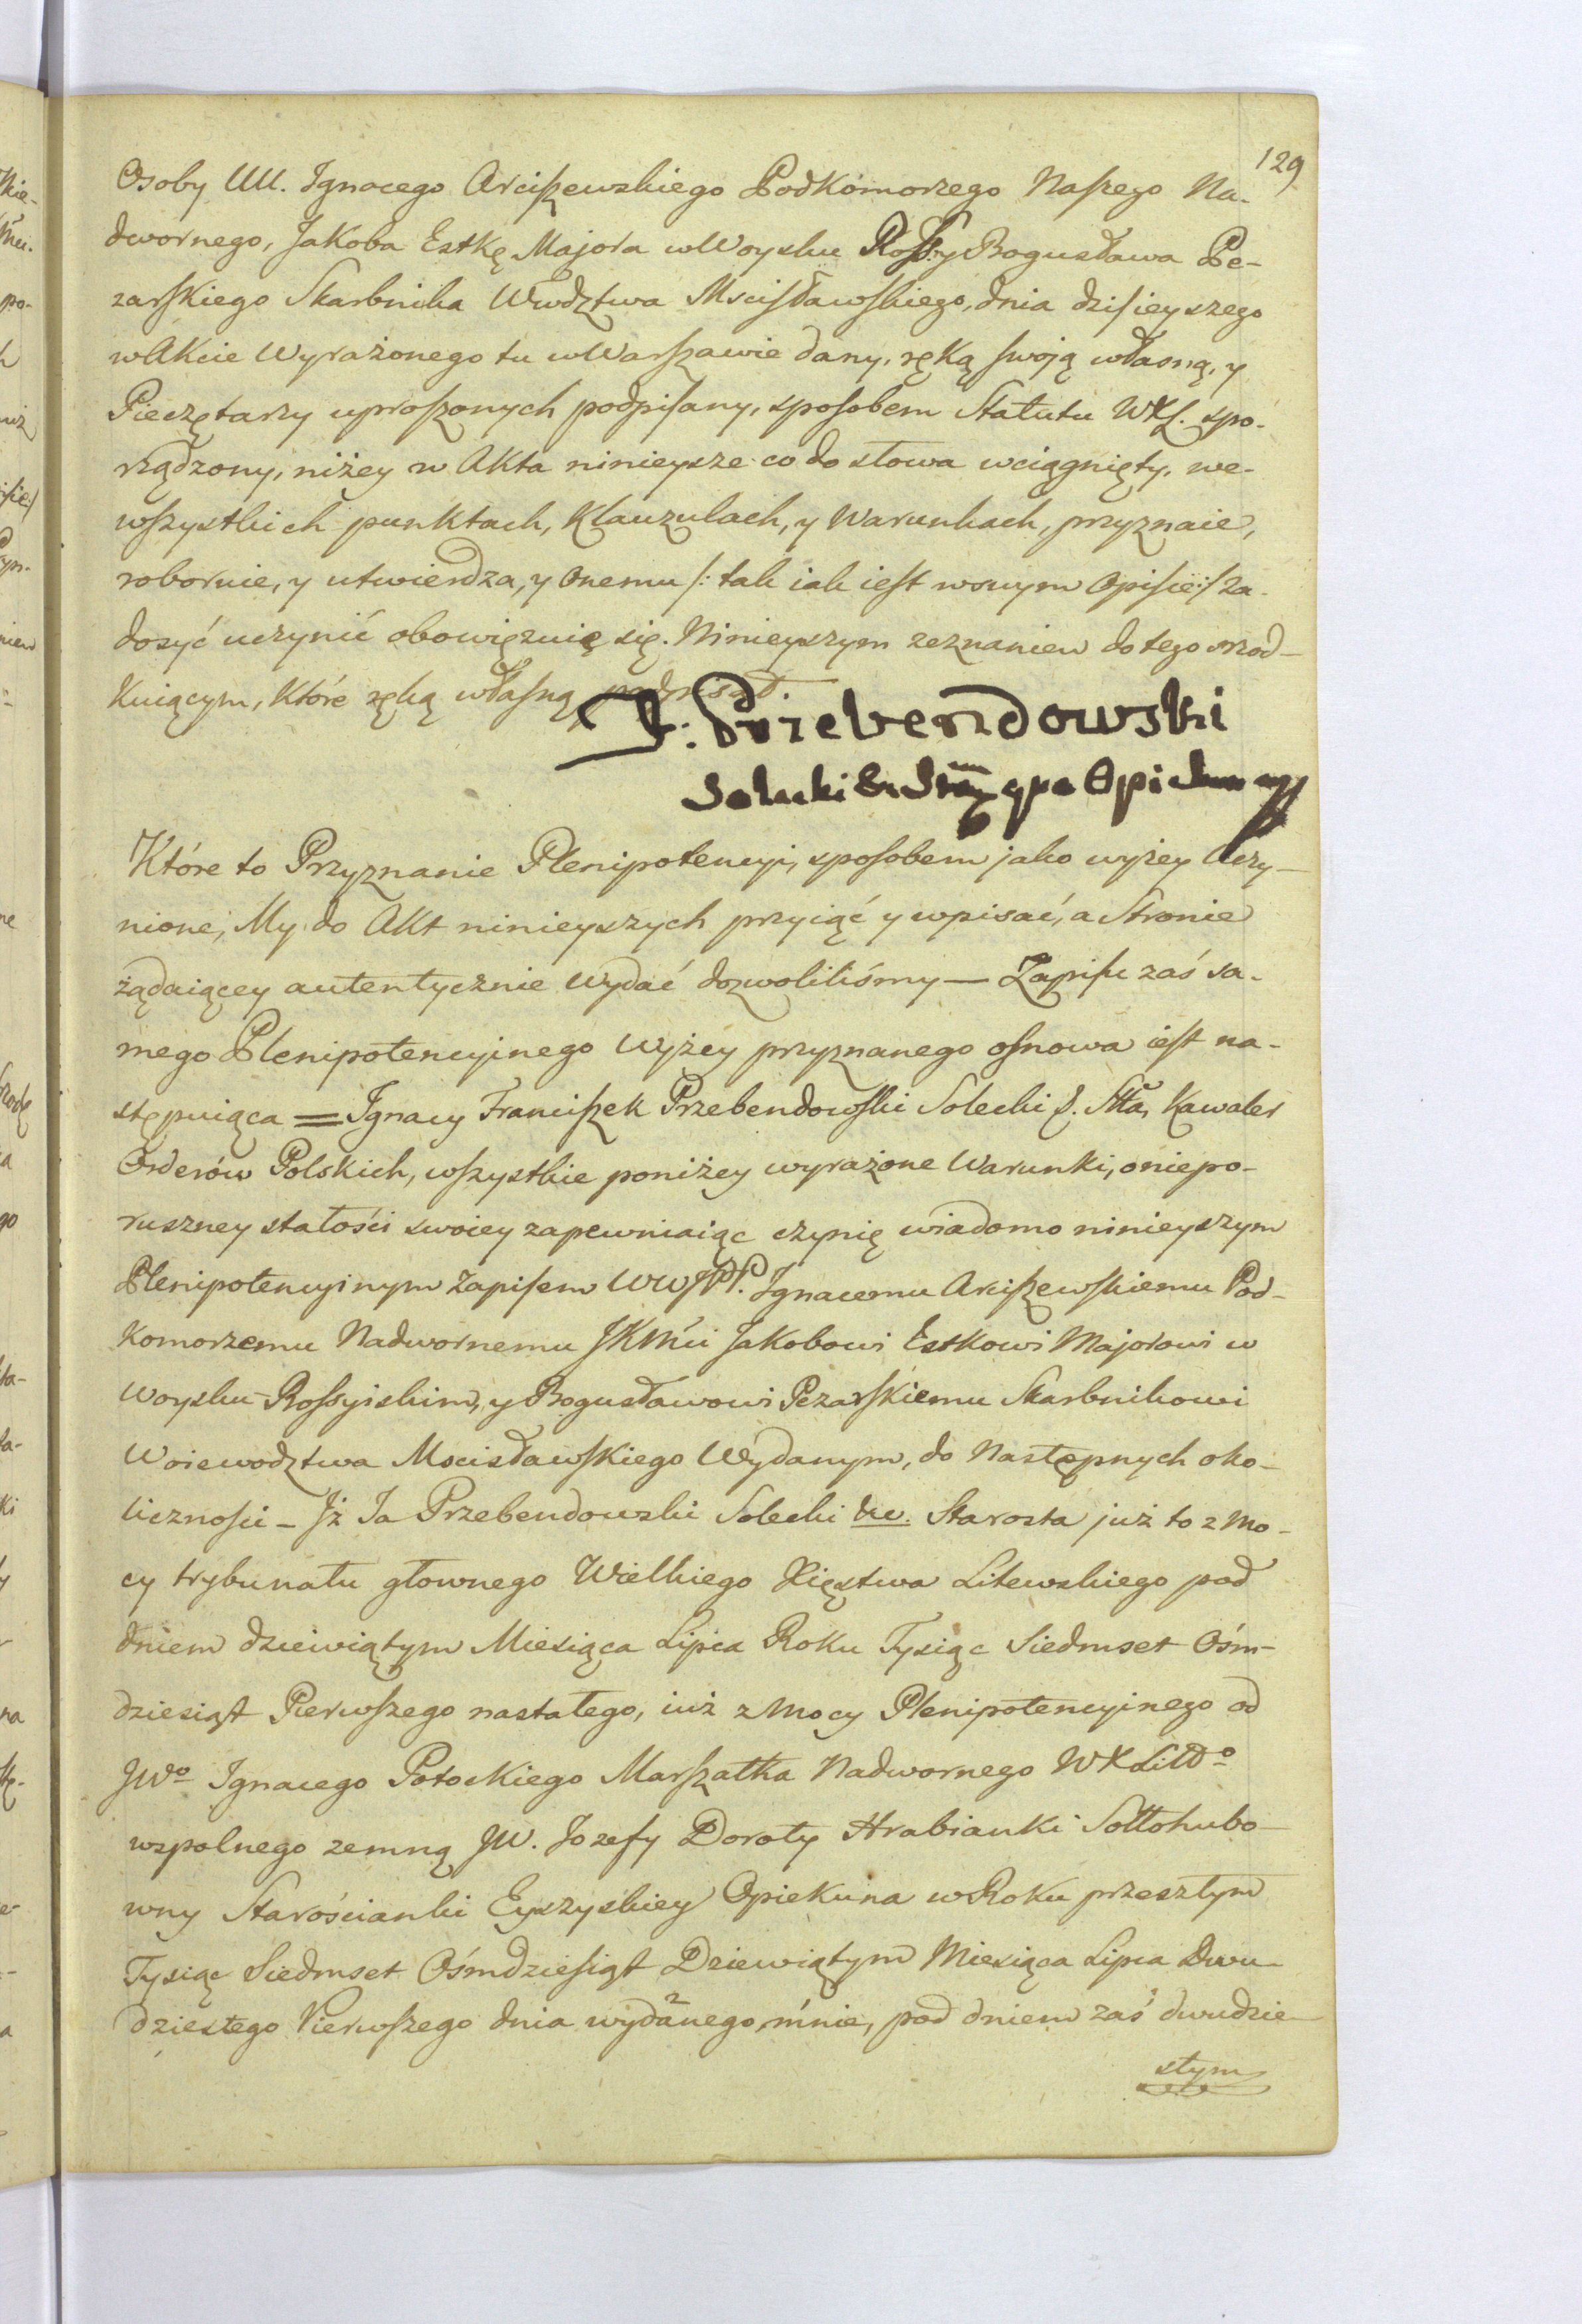 129
Osoby UU. Ignacego Arciszewskiego Podkomorzego Naszego Na-
dwornego, Jakoba Estkę Majora w Woysku Rossy: y Bogusława Pe-
zarskiego Skarbnika Wwdztwa Mscisławskiego, dnia dzisieyszego
w Akcie Wyrażonego tu w Warszawie dany, ręką swoją własną, y
Pieczętarzy uproszonych podpisany, sposobem Statutu WXL. spo-
rządzony, niżey w Akta ninieysze co do słowa wciągnięty, we-
wszystkich punktach, Klauzulach, y Warunkach, przyznaie,
roboruie, y utwierdza, y Onemu /: tak iak iest w swym Opisie :/ za-
dosyć uczynić obowięzuię się. Ninieyszym zeznaniem do tego srzod-
kuiącym, które ręką własną podpisał.
J: Przebendowski
Solecki
Które to Przyznanie Plenipotencyi, sposobem jako wyżey Uczy-
nione, My do Akt ninieyszych przyiąć y wpisać, a Stronie
żądaiącey autentycznie wydać dozwoliliśmy — Zapisu zaś sa-
mego Plenipotencyinego wyżey przyznanego osnowa iest na-
stępuiąca = Ignacy Franciszek Przebendowski Solecki &. Stta, Kawaler
Orderów Polskich, wszystkie poniżey wyrażone Warunki, o niepo-
ruszney stałości swoiey zapewniaiąc czynię wiadomo ninieyszym
Plenipotencyinym Zapisem WWJPP. Ignacemu Arciszewskiemu Pod-
komorzemu Nadwornemu JKMci Jakobowi Estkowi Majorowi w
Woysku Rossyiskim, y Bogusławowi Pezarskiemu Skarbnikowi
Woiewodztwa Mscisławskiego Wydanym, do Następnych oko-
licznosci — Jż Ja Przebendowski Solecki &c. Starosta już to z Mo-
cy trybunału głownego Wielkiego Xięstwa Litewskiego pod
dniem dziewiątym Miesiąca Lipca Roku Tysiąc Siedmset Ośm-
dziesiąt Pierwszego nastałego, iuż z Mocy Plenipotencyinego od
JWo Ignacego Potockiego Marszałka Nadwornego WXLittgo
wspolnego zemną JW. Jozefy Doroty Hrabianki Sołłohubo-
wny Starościanki Eyszyskiey Opiekuna w Roku przeszłym
Tysiąc Siedmset Ośmdziesiąt Dziewiątym Miesiąca Lipca Dwu-
dziestego Pierwszego dnia wydanego mnie, pod dniem zaś dwudzie-
stym